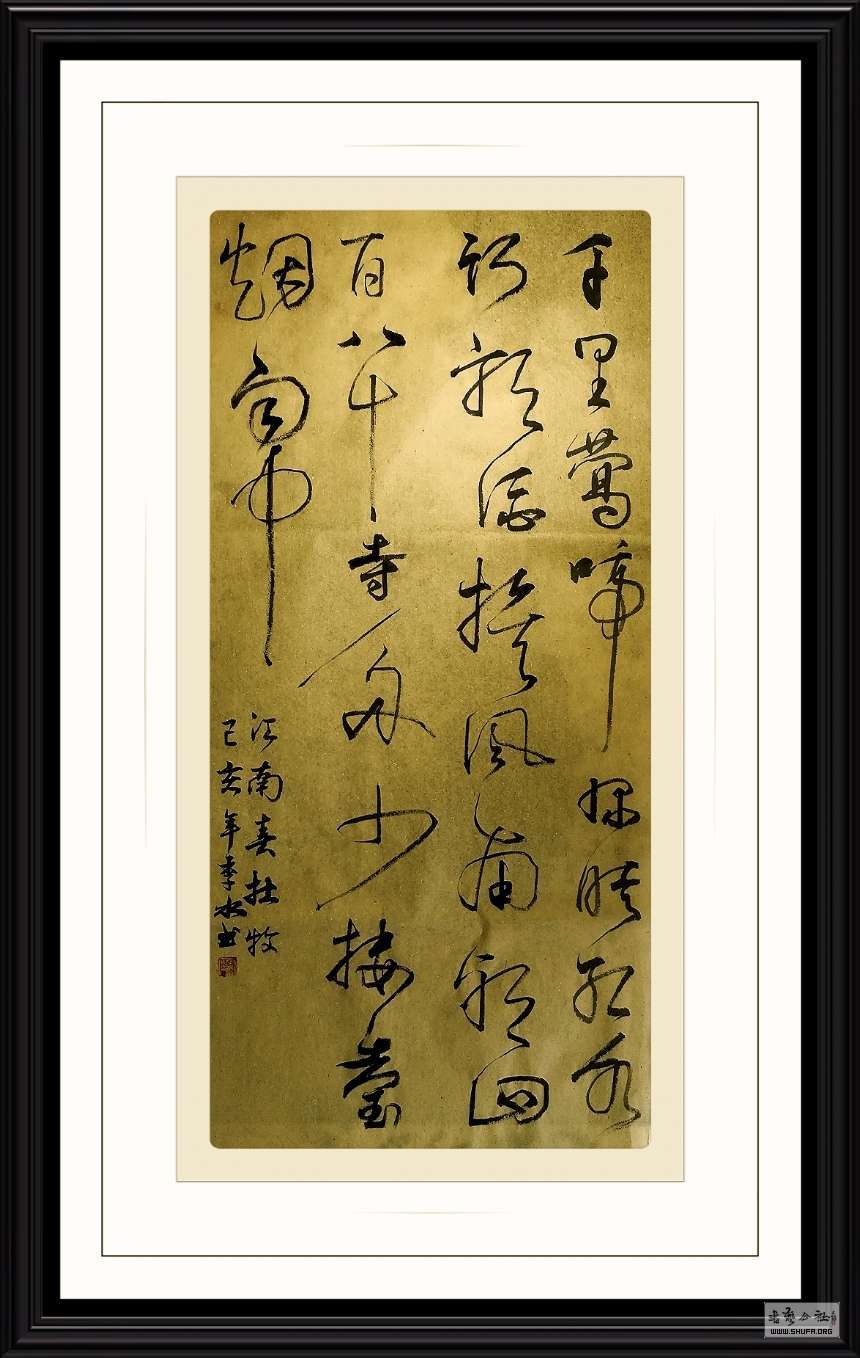 千里鶯啼绿映红水
村郭酒旗風南朝四
百八十寺多少楼臺
烟雨中
江南春杜牧
己亥年季书
書藝公社
WWW.SHUFA.ORG